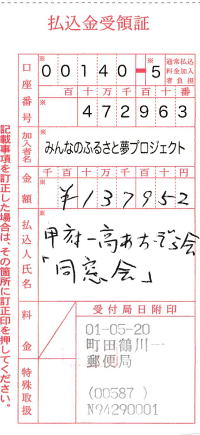 払込金受領証
口座番号
00140-5
通常払込料金加入者負担
百十万千百十番
472963
加入者名
みんなのふるさと夢プロジェクト
金額
千百十万千百十円
¥137952
払込人氏名
「同窓会」
料金
特殊取扱
受付局日附印
01-05-20
町田鶴川一
郵便局
(00587)
N94290001
記載事項を訂正した場合は、その箇所に訂正印を押してください。